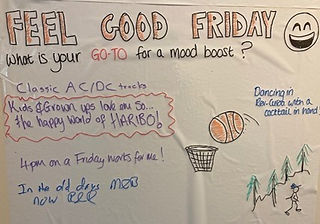 FEEL GOOD FRIDAY
What is your GO-TO for a mood boost?
Classic AC/DC tracks
Kids & Grown ups love em so...
the happy world of HARIBO!
4pm on a Friday works for me!
In the old days
now
Dancing in
with a
cocktail in hand